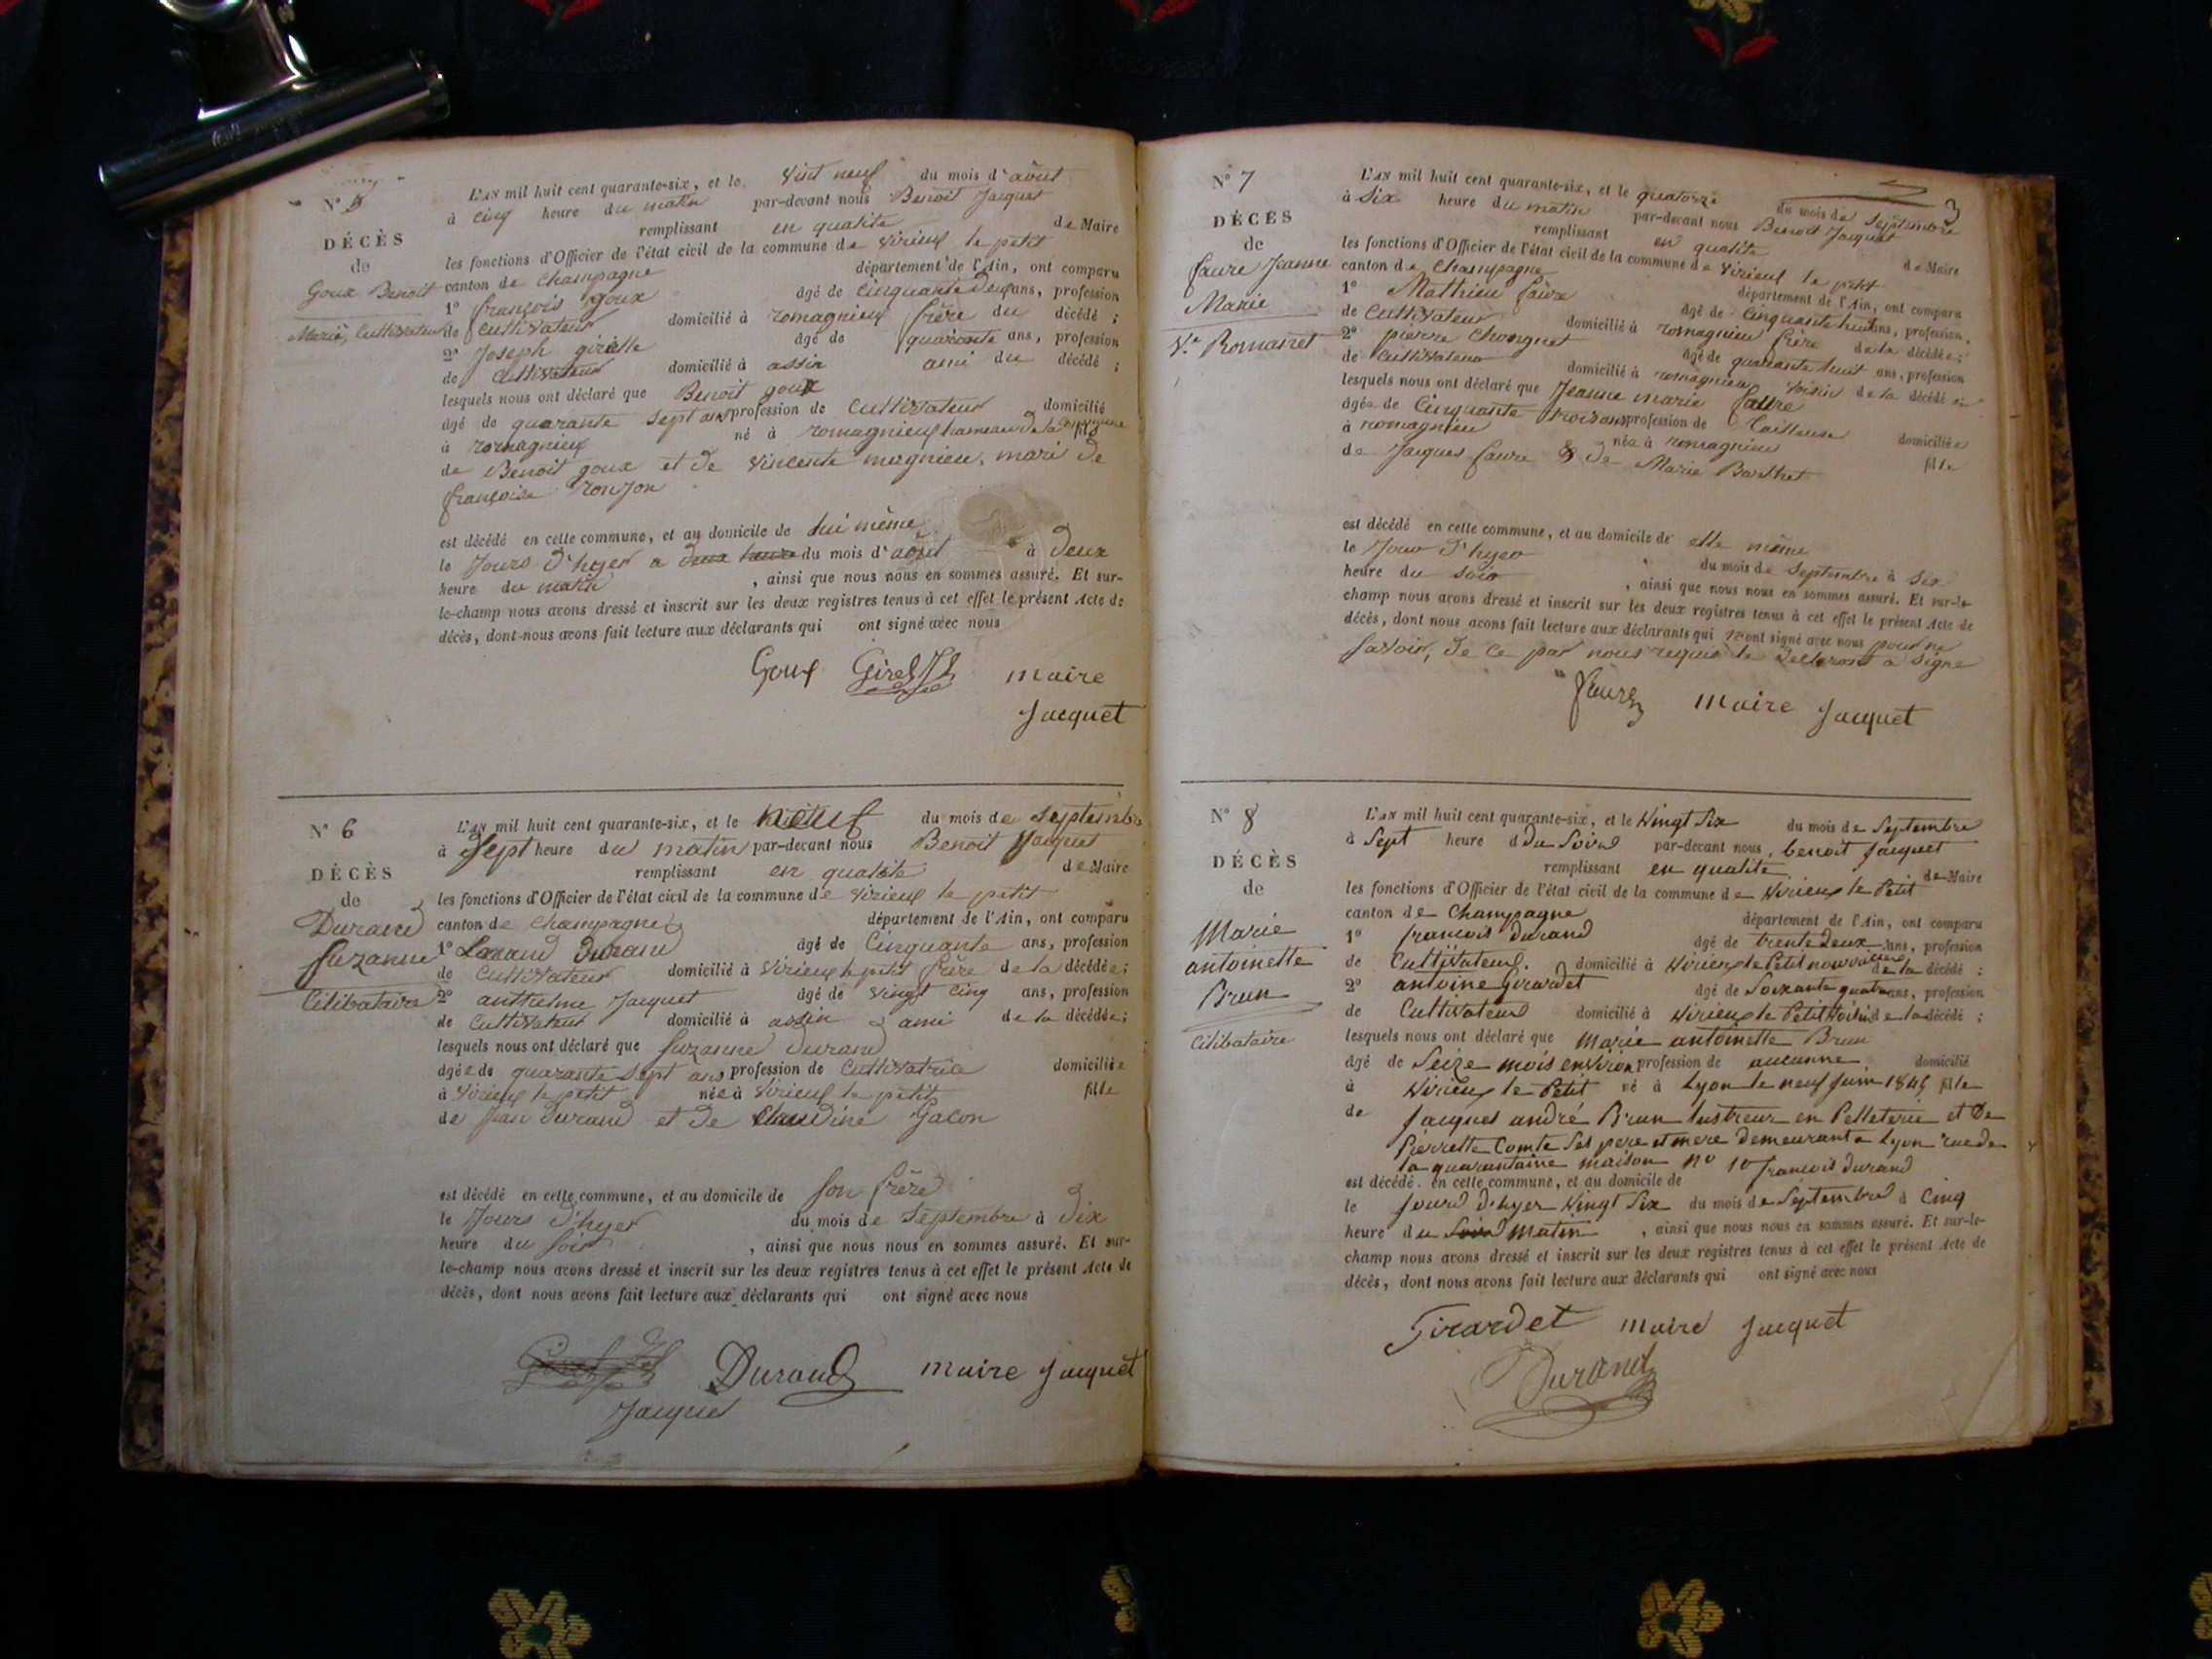 N° 5
DÉCÈS
de
Goux Benoit
Marié, Cultivateur
L'AN mil huit cent quarante-six, et le vint neuf du mois d'août
à cinq heure du matin par-devant nous Benoit Jacquet
remplissant en qualité de Maire
les fonctions d'Officier de l'état civil de la commune de virieux le petit
canton de Champagne département de l'Ain, ont comparu
1° françois goux âgé de cinquante deux ans, profession
de Cultivateur domicilié à romagnieux frère du décédé ;
2° Joseph girelle âgé de quarante ans, profession
de Cultivateur domicilié à assin ami du décédé ;
lesquels nous ont déclaré que Benoit goux
âgé de quarante sept ans profession de Cultivateur domicilié
à romagnieux né à romagnieux hameau de la commune fils
de Benoit goux et de vincente magnieu, mari de
françoise ronjon
est décédé en cette commune, et au domicile de lui même
le Jours d'hyer a deux heure du mois d'août à deux
heure du matin , ainsi que nous nous en sommes assuré. Et sur-
le-champ nous avons dressé et inscrit sur les deux registres tenus à cet effet le présent Acte de
décès, dont nous avons fait lecture aux déclarants qui ont signé avec nous
Goux maire
Jacquet
N° 6
DÉCÈS
de
Durand
Suzanne
Célibataire
L'AN mil huit cent quarante-six, et le neuf du mois de septembre
à Sept heure du matin par-devant nous Benoit Jacquet
remplissant en qualité de Maire
les fonctions d'Officier de l'état civil de la commune de virieux le petit
canton de Champagne département de l'Ain, ont comparu
1° Durand âgé de Cinquante ans, profession
de Cultivateur domicilié à virieux le petit frère de la décédée ;
2° anthelme Jacquet âgé de vingt cinq ans, profession
de Cultivateur domicilié à assin ami de la décédée ;
lesquels nous ont déclaré que Suzanne Durand
âgée de quarante sept ans profession de Cultivatrice domiciliée
à virieux le petit née à virieux le petit fille
de Jean Durand et de Claudine Gacon
est décédé en cette commune, et au domicile de son frère
le Jours d'hyer du mois de septembre à Dix
heure du soir , ainsi que nous nous en sommes assuré. Et sur-
le-champ nous avons dressé et inscrit sur les deux registres tenus à cet effet le présent Acte de
décès, dont nous avons fait lecture aux déclarants qui ont signé avec nous
Durand maire Jacquet
Jacquet
3
N° 7
DÉCÈS
de
faure Jeanne
Marie
Ve Romanet
L'AN mil huit cent quarante-six, et le quatorze du mois de Septembre
à Six heure du matin par-devant nous Benoit Jacquet
remplissant en qualité de Maire
les fonctions d'Officier de l'état civil de la commune de virieux le petit
canton de Champagne département de l'Ain, ont comparu
1° Mathieu faure âgé de Cinquante huit ans, profession
de Cultivateur domicilié à romagnieu frère de la décédée ;
2° pierre Chongnet âgé de quarante huit ans, profession
de Cultivateur domicilié à romagnieu voisin de la décédée
lesquels nous ont déclaré que Jeanne marie faure
âgée de Cinquante trois ans profession de Tailleuse domiciliée
à romagnieu née à romagnieu fille
de Jacques faure & de Marie Barthet
est décédé en cette commune, et au domicile de elle même
le Jour d'hyer du mois de Septembre à Six
heure du soir , ainsi que nous nous en sommes assuré. Et sur-le-
champ nous avons dressé et inscrit sur les deux registres tenus à cet effet le présent Acte de
décès, dont nous avons fait lecture aux déclarants qui n'ont signé avec nous pour ne
savoir, de ce par nous requis le a signé
faure maire Jacquet
N° 8
DÉCÈS
de
Marie
antoinette
Brun
Célibataire
L'AN mil huit cent quarante-six, et le vingt Six du mois de Septembre
à Sept heure d du Soird par-devant nous, benoit Jacquet
remplissant en qualité de Maire
les fonctions d'Officier de l'état civil de la commune de virieux le Petit
canton de Champagne département de l'Ain, ont comparu
1° francois durand âgé de trente Deux ans, profession
de Cultivateur. domicilié à virieux le Petit nourricier de la décédé ;
2° antoine Girardet âgé de Soixante quatre ans, profession
de Cultivateur domicilié à virieux le Petit voisin de la décédé ;
lesquels nous ont déclaré que Marie antoinette Brun
âgé de Seize mois environ profession de aucunne domicilié
à virieux le Petit né à Lyon le neuf Juin 1845 fille
de Jacques andré Brun lustreur en Pelleterie et De
Pierrette Comte Ses pere et mere demeurant a Lyon rue de
la quarantaine maison n° 10 francois durand
est décédé en cette commune, et au domicile de
le Jourd d'hyer vingt Six du mois de Septembre à Cinq
heure du Soird matin , ainsi que nous nous en sommes assuré. Et sur-le-
champ nous avons dressé et inscrit sur les deux registres tenus à cet effet le présent Acte de
décès, dont nous avons fait lecture aux déclarants qui ont signé avec nous
Girardet maire Jacquet
Durand